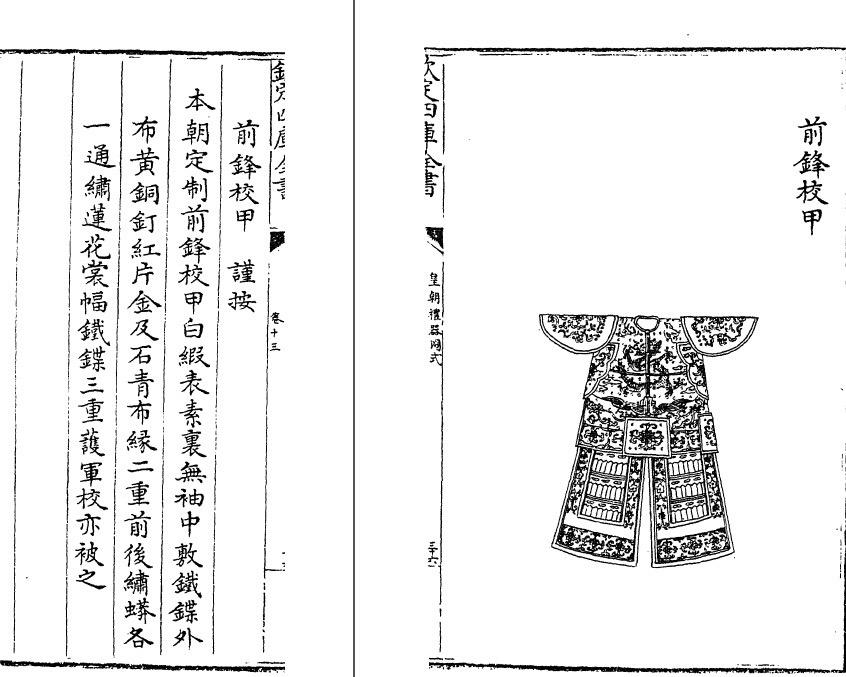 前鋒校甲
欽定四庫全書
皇朝禮器圖式
三十六
欽定四庫全書
卷十三
前鋒校甲 謹按
本朝定制前鋒校甲白緞表素裏無袖中敷鐵鍱外
布黃銅釘紅片金及石青布緣二重前後繡蟒各
一通繡蓮花裳幅鐵鍱三重護軍校亦被之